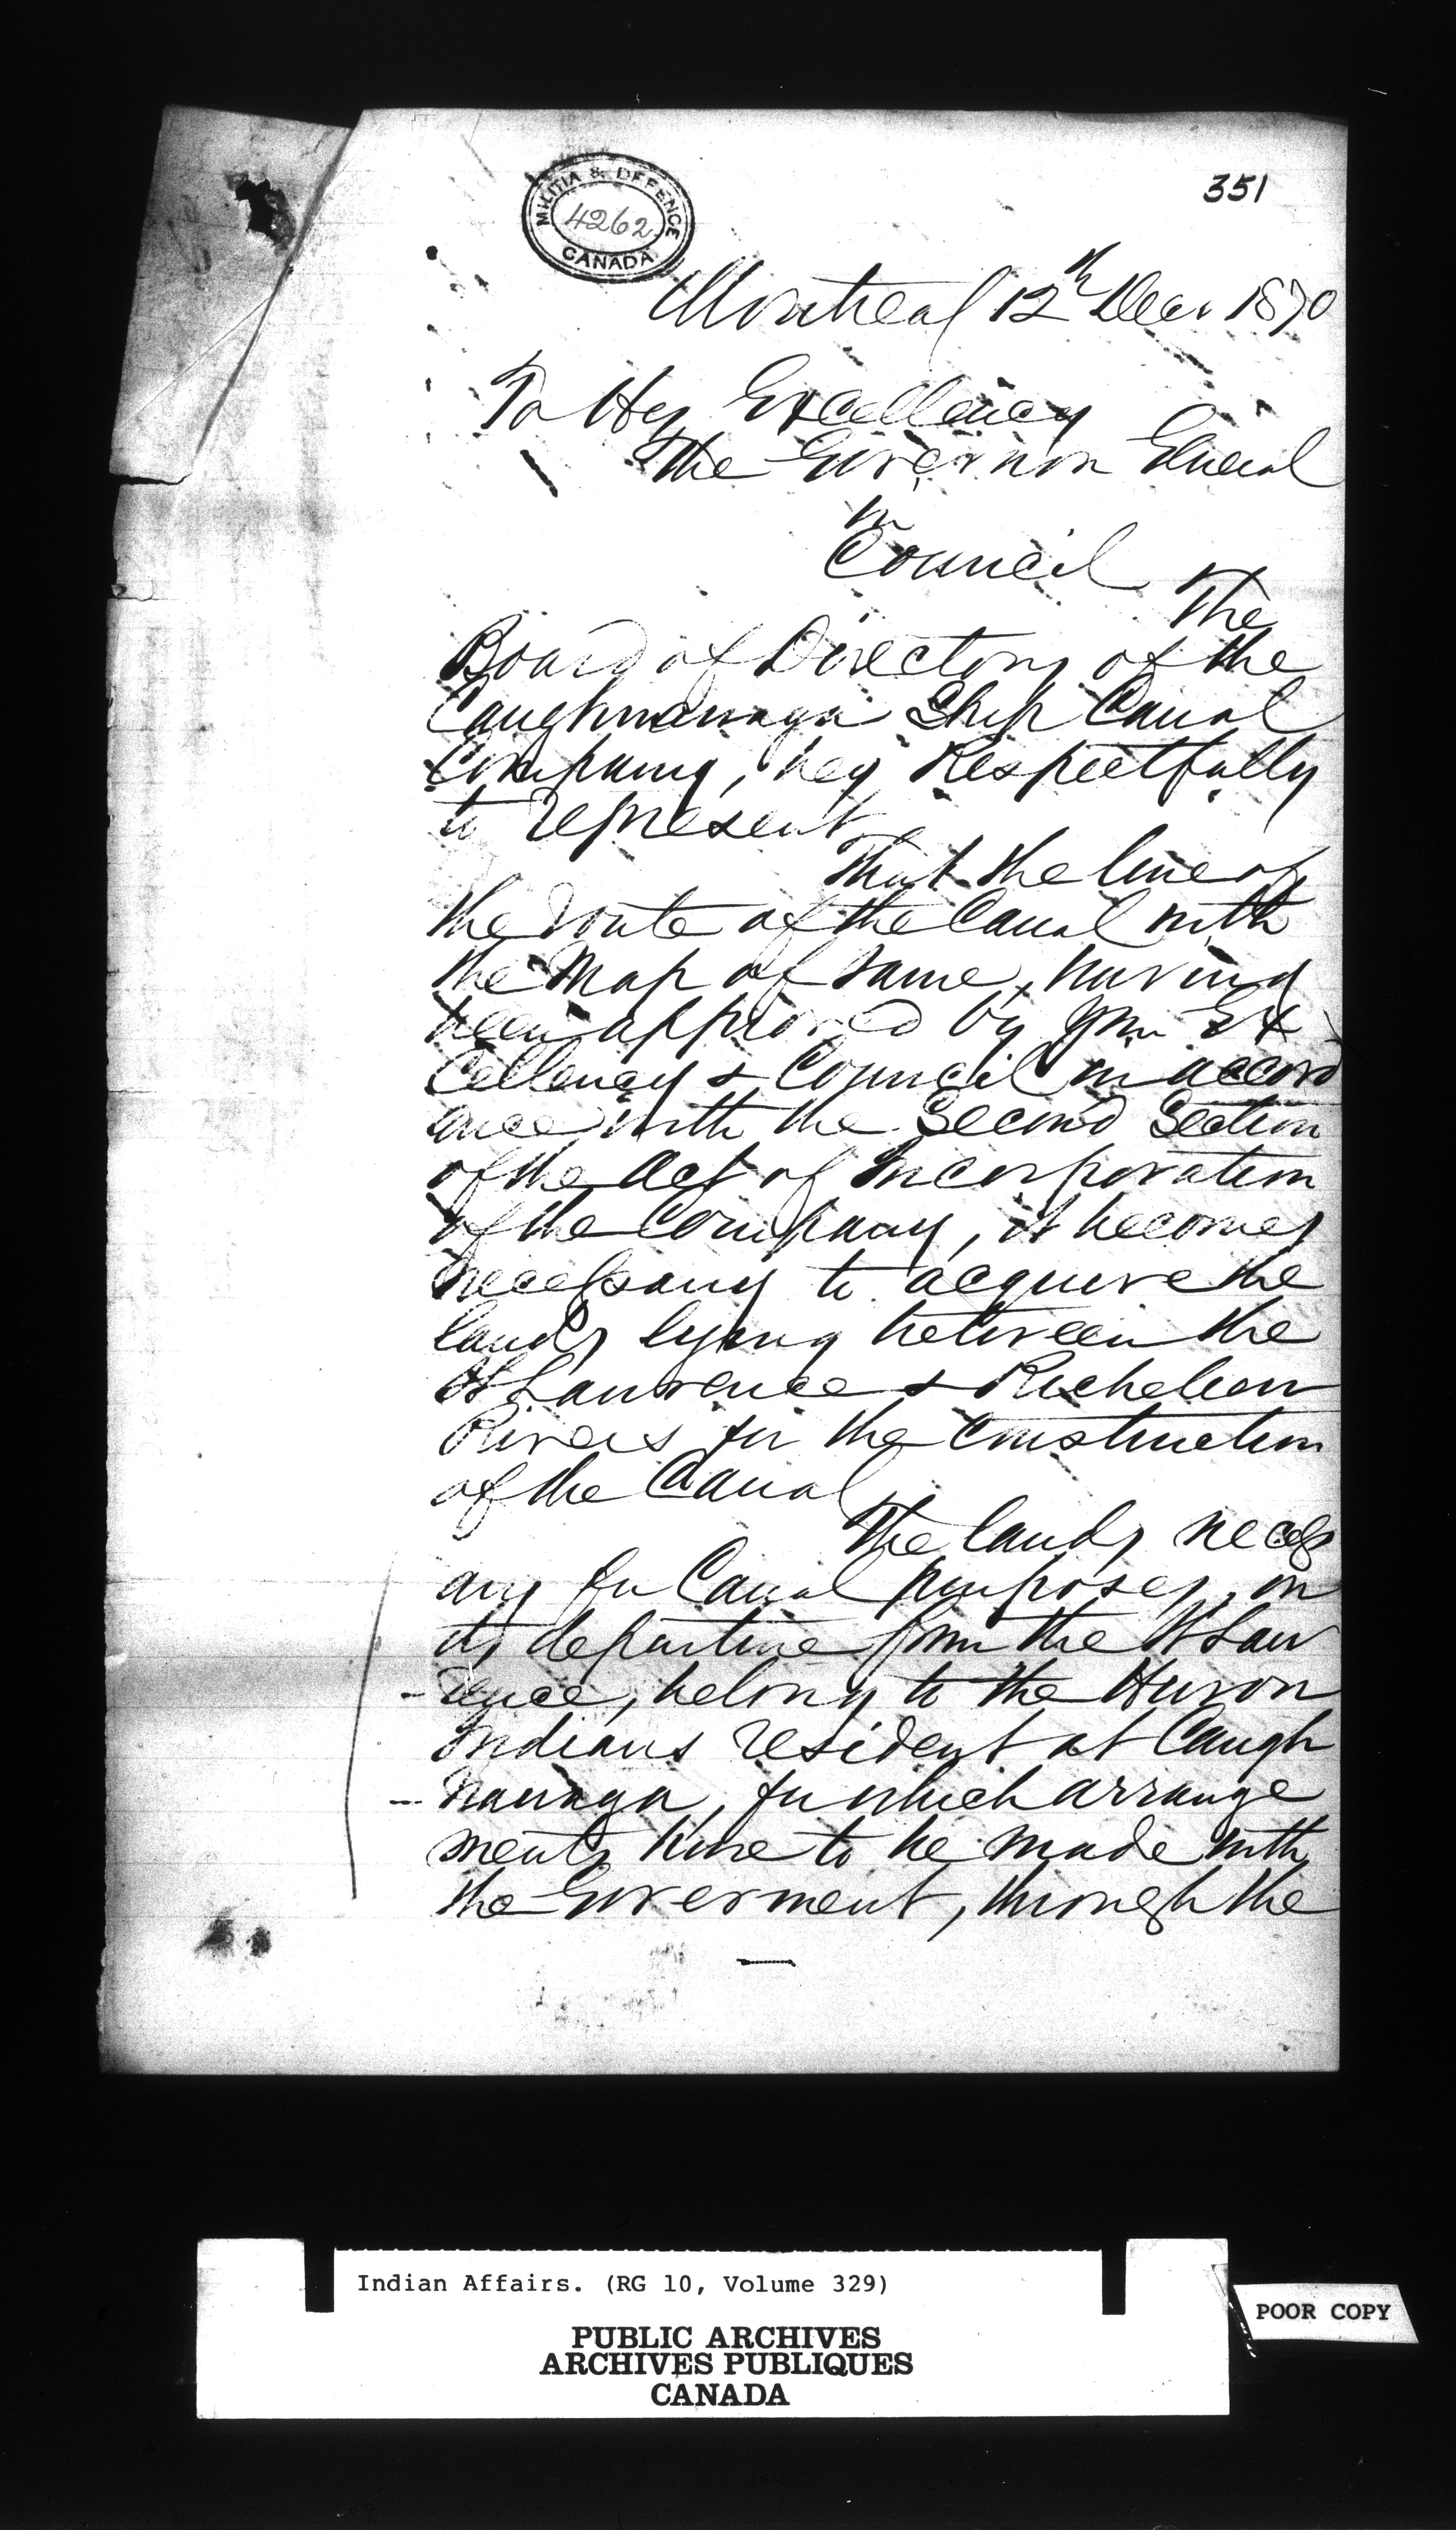 351
MILITIA & DEFENCE
4262
CANADA
Montreal 12th Decr 1870
To His Excellency
The Governor General
in
Council
The
Board of Directors of the
Caughnawaga Ship Canal
Company, beg Respectfully
to represent
That the line of
the route of the Canal with
the Map of same, having
been approved by Your Ex
cellency & Council in accord
ance with the Second Section
of the Act of Incorporation
of the Company, it becomes
necessary to acquire the
lands lying between the
St Lawrence & Richelieu
Rivers for the construction
of the Canal
The lands necess
ary for Canal purposes, on
its departure from the St Law
- rence, belong to the Huron
Indians resident at Caugh
- nawaga, for which arrange
ments have to be made with
the Goverment, through the
Indian Affairs. (RG 10, Volume 329)
PUBLIC ARCHIVES
ARCHIVES PUBLIQUES
CANADA
POOR COPY